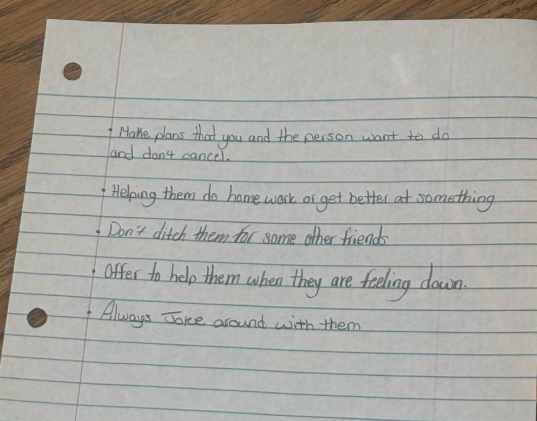 • Make plans that you and the person want to do
and don't cancel.
• Helping them do homework or get better at something
• Don't ditch them for some other friends
• Offer to help them when they are feeling down.
• Always Joke around with them